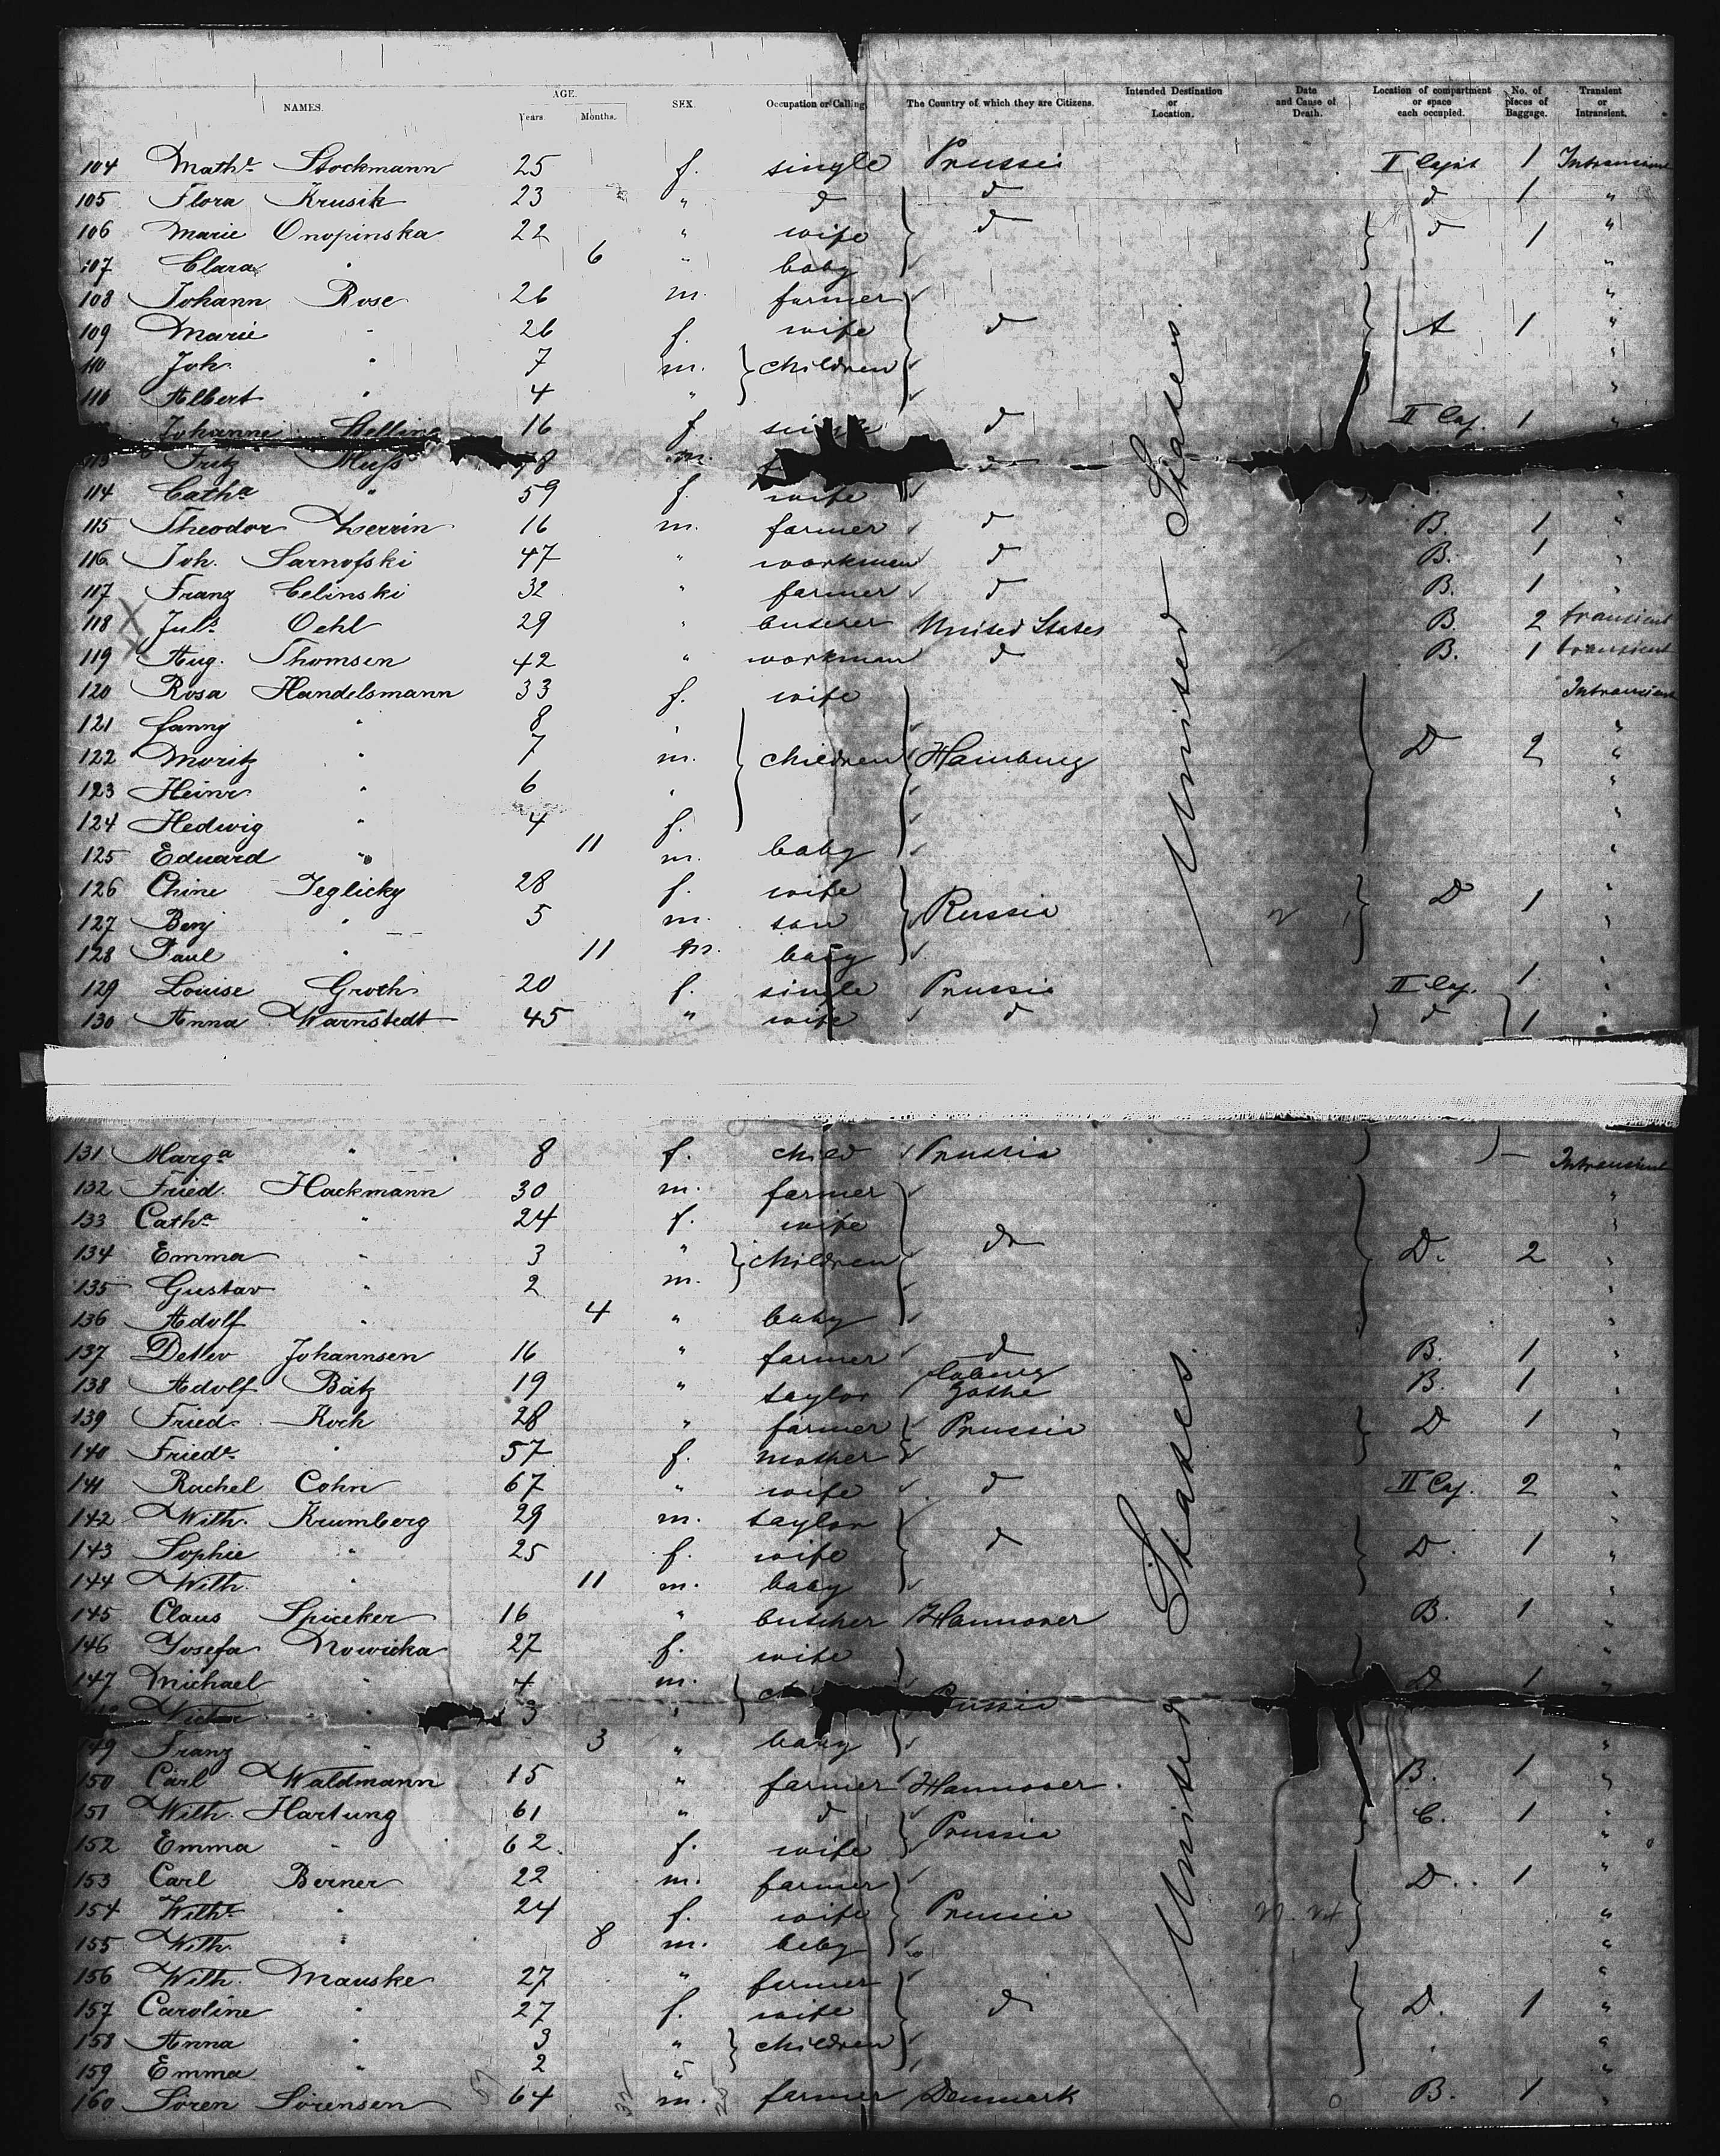 NAMES. AGE. Years. Months. SEX. Occupation or Calling. The Country of which they are Citizens. Intended Destination or Location. Date and Cause of Death. Location of compartment or space each occupied. No. of pieces of Baggage. Transient or Intransient.
104 Mathe Stockmann 25 f. single Prussia II Cajüt 1 Intransient
105 Flora Krusik 23 " d d d 1 "
106 Marie Onopinska 22 " wife d d 1 "
107 Clara " 6 " baby "
108 Johann Rose 26 m. farmer "
109 Marie " 26 f. wife d A 1 "
110 Joh. " 7 m. children "
111 Albert " 4 " "
Johanne 16 f single d II Caj. 1 "
113 Fritz 78 m. d
114 Catha " 59 f. wife "
115 Theodor 16 m. farmer d B. 1 "
116 Joh. Sarnofski 47 " workman d B. 1 "
117 Franz Celinski 32 " farmer d B. 1 "
118 Juls Oehl 29 " butcher United States B. 2 transient
119 Aug. Thomsen 42 " workman d B. 1 transient
120 Rosa Handelsmann 33 f. wife Intransient
121 Fanny " 8 " "
122 Moritz " 7 m. children Hamburg D 2 "
123 Heinr " 6 " "
124 Hedwig " 4 f. "
125 Eduard " 11 m. baby "
126 Chine Jeglicky 28 f. wife D 1 "
127 Benj " 5 m. son Russia "
128 Paul " 11 m. baby "
129 Louise Groth 20 f. single Prussia II Caj. 1 "
130 Anna Warnstedt 45 " wife d d 1 "
United States
131 Marga " 8 f. child Prussia Intransient
132 Fried. Hackmann 30 m. farmer "
133 Catha " 24 f. wife "
134 Emma " 3 " children do D. 2 "
135 Gustav " 2 m. "
136 Adolf " 4 " baby "
137 Detlev Johannsen 16 " farmer d B. 1 "
138 Adolf Bätz 19 " taylor Coburg Gotha B. 1 "
139 Fried. Koch 28 " farmer Prussia D 1 "
140 Friede " 57 f. mother "
141 Rachel Cohn 67 " wife d II Caj. 2 "
142 Wilh. Krumberg 29 m. taylor "
143 Sophie " 25 f. wife d D. 1 "
144 Wilh. " 11 m. baby "
145 Claus Spiecker 16 " butcher Hannover B. 1 "
146 Josefa Nowicka 27 f. wife "
147 Michael " 4 m. D 1 "
Victor " 3 " Prussia
149 Franz " 3 " baby "
150 Carl Waldmann 15 " farmer Hannover. B. 1 "
151 Wilh. Hartung 61 " d Prussia C. 1 "
152 Emma " 62 f. wife "
153 Carl Berner 22 m. farmer D. 1 "
154 Wilhe " 24 f. wife Prussia "
155 Wilh. " 8 m. baby "
156 Wilh. Mauske 27 " farmer "
157 Caroline " 27 f. wife do D. 1 "
158 Anna " 3 " children "
159 Emma " 2 " "
160 Sören Sörensen 64 m. farmer Denmark B. 1 "
United States